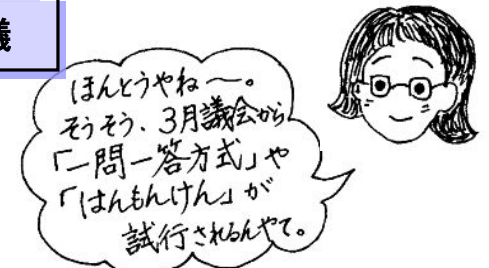 議
ほんとうやね〜。
そうそう、3月議会から
「一問一答方式」や
「はんもんけん」が
試行されるんやて。